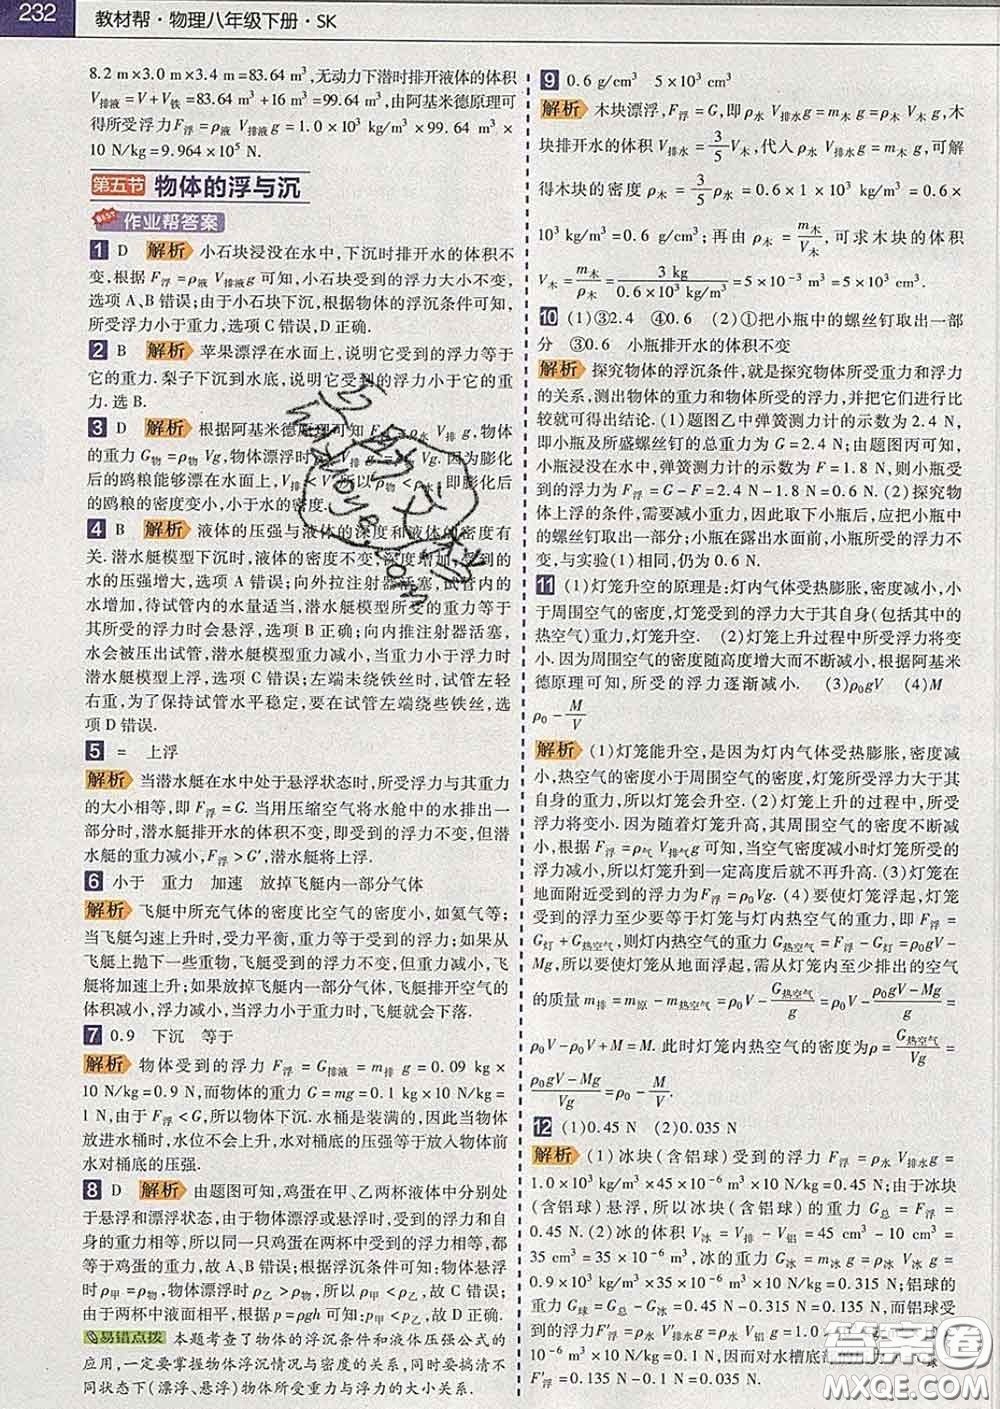 232 教材帮·物理八年级下册·SK
8.2 m×3.0 m×3.4 m=83.64 m³,无动力下潜时排开液体的体积
V排液=V+V铁=83.64 m³+16 m³=99.64 m³,由阿基米德原理可
得所受浮力F浮=ρ液 V排液g=1.0×10³ kg/m³×99.64 m³×
10 N/kg=9.964×10⁵ N.
第五节 物体的浮与沉
BEST 作业帮答案
1 D 解析 小石块浸没在水中,下沉时排开水的体积不
变,根据 F浮=ρ液V排液g 可知,小石块受到的浮力大小不变,
选项A、B错误;由于小石块下沉,根据物体的浮沉条件可知,
所受浮力小于重力,选项C错误,D正确.
2 B 解析 苹果漂浮在水面上,说明它受到的浮力等于
它的重力.梨子下沉到水底,说明它受到的浮力小于它的重
力.选B.
3 D 解析 根据阿基米德原理可知 F浮=ρ水 V排g,物体
的重力G物=ρ物 Vg,物体漂浮时 Vg.因为膨化
后的鸥粮能够漂在水面上,V排<V 所以 <ρ水,即膨化后
的鸥粮的密度变小,小于水的密度.
4 B 解析 液体的压强与液体的深度和液体的密度有
关.潜水艇模型下沉时,液体的密度不变,深度增加,受到的
水的压强增大,选项A错误;向外拉注射器活塞,试管内的
水增加,待试管内的水量适当,潜水艇模型所受的重力等于
其所受的浮力时会悬浮,选项B正确;向内推注射器活塞,
水会被压出试管,潜水艇模型重力减小,当重力小于浮力时
潜水艇模型上浮,选项C错误;左端未绕铁丝时,试管左轻
右重,为了保持试管水平稳定,要在试管左端绕些铁丝,选
项D错误.
5 = 上浮
解析 当潜水艇在水中处于悬浮状态时,所受浮力与其重力
的大小相等,即 F浮=G.当用压缩空气将水舱中的水排出一
部分时,潜水艇排开水的体积不变,即受到的浮力不变,但潜
水艇的重力减小,F浮>G′,潜水艇将上浮.
6 小于 重力 加速 放掉飞艇内一部分气体
解析 飞艇中所充气体的密度比空气的密度小,如氦气等;
当飞艇匀速上升时,受力平衡,重力等于受到的浮力;如果从
飞艇上抛下一些重物,飞艇受到的浮力不变,但重力减小,飞
艇将加速上升;如果放掉飞艇内一部分气体,飞艇排开空气的
体积减小,浮力减小,当浮力小于重力时,飞艇就会下落.
7 0.9 下沉 等于
解析 物体受到的浮力 F浮=G排液=m排 g=0.09 kg×
10 N/kg=0.9 N,而物体的重力 G=mg=0.1 kg×10 N/kg=
1 N,由于 F浮<G,所以物体下沉.水桶是装满的,因此当物体
放进水桶时,水位不会上升,水对桶底的压强等于放入物体前
水对桶底的压强.
8 D 解析 由题图可知,鸡蛋在甲、乙两杯液体中分别处
于悬浮和漂浮状态,由于物体漂浮或悬浮时,受到的浮力和自
身的重力相等,所以同一只鸡蛋在两杯中受到的浮力相等,都
等于鸡蛋的重力.故A、B错误;根据浮沉条件可知:物体悬浮
时 ρ甲=ρ物,物体漂浮时 ρ乙>ρ物,所以 ρ甲<ρ乙,故C错误;
由于两杯中液面相平,根据 p=ρgh 可知:p甲<p乙,故D正确.
易错点拨 本题考查了物体的浮沉条件和液体压强公式的
应用,一定要掌握物体浮沉情况与密度的关系,同时要搞清不
同状态下(漂浮、悬浮)物体所受重力与浮力的大小关系.
9 0.6 g/cm³ 5×10³ cm³
解析 木块漂浮,F浮=G,即 ρ水 V排水g=m木 g=ρ木V木g,木
块排开水的体积 V排水=3/5 V木,代入 ρ水 V排水g=m木 g,可解
得木块的密度 ρ木=3/5 ρ水=0.6×1×10³ kg/m³=0.6×
10³ kg/m³=0.6 g/cm³;再由 ρ木=m木/V木,可求木块的体积
V木=m木/ρ木=3 kg/(0.6×10³ kg/m³)=5×10⁻³ m³=5×10³ cm³.
10 (1)③2.4 ④0.6 (2)①把小瓶中的螺丝钉取出一部
分 ③0.6 小瓶排开水的体积不变
解析 探究物体的浮沉条件,就是探究物体所受重力和浮力
的关系,测出物体的重力和物体所受的浮力,并把它们进行比
较就可得出结论.(1)题图乙中弹簧测力计的示数为2.4 N,
即小瓶及所盛螺丝钉的总重力为 G=2.4 N;由题图丙可知,
小瓶浸没在水中,弹簧测力计的示数为 F=1.8 N,则小瓶受
到的浮力为 F浮=G-F=2.4 N-1.8 N=0.6 N.(2)探究物
体上浮的条件,需要减小重力,因此取下小瓶后,应把小瓶中
的螺丝钉取出一部分;小瓶在露出水面前,小瓶所受的浮力不
变,与实验(1)相同,仍为0.6 N.
11 (1)灯笼升空的原理是:灯内气体受热膨胀,密度减小,小
于周围空气的密度,灯笼受到的浮力大于其自身(包括其中的
热空气)重力,灯笼升空. (2)灯笼上升过程中所受浮力将变
小.因为周围空气的密度随高度增大而不断减小,根据阿基米
德原理可知,所受的浮力逐渐减小. (3)ρ₀gV (4)M
ρ₀-M/V
解析 (1)灯笼能升空,是因为灯内气体受热膨胀,密度减
小,热空气的密度小于周围空气的密度,灯笼所受浮力大于其
自身的重力,所以灯笼会升空.(2)灯笼上升的过程中,所受
浮力将变小.因为随着灯笼升高,其周围空气的密度不断减
小,根据 F浮=ρ气 V排气g 可知,当空气密度减小时灯笼所受
浮力减小,所以灯笼升到一定高度后就不再升高.(3)灯笼在
地面附近受到的浮力为F浮=ρ₀Vg.(4)要使灯笼浮起,灯笼
所受浮力至少要等于灯笼与灯内热空气的重力,即 F浮=
G灯+G热空气,则灯内热空气的重力 G热空气=F浮-G灯=ρ₀gV-
Mg,所以要使灯笼从地面浮起,需从灯笼内至少排出的空气
的质量 m排=m原-m热空气=ρ₀V-G热空气/g=ρ₀V-(ρ₀gV-Mg)/g=
ρ₀V-ρ₀V+M=M.此时灯笼内热空气的密度为ρ=G热空气/Vg=
(ρ₀gV-Mg)/Vg=ρ₀-M/V.
12 (1)0.45 N (2)0.035 N
解析 (1)冰块(含铝球)受到的浮力 F浮=ρ水 V排水g=
1.0×10³ kg/m³×45×10⁻⁶ m³×10 N/kg=0.45 N;由于冰
块(含铝球)悬浮,所以冰块(含铝球)的重力 G总=F浮=
0.45 N.(2)冰的体积 V冰=V排-V铝=45 cm³-10 cm³=
35 cm³=35×10⁻⁶ m³,冰的重力 G冰=m冰g=ρ冰V冰g=
0.9×10³ kg/m³×35×10⁻⁶ m³×10 N/kg=0.315 N;铝球的
重力 G球=G总-G冰=0.45 N-0.315 N=0.135 N,而铝球受
到的浮力F′浮=ρ水 V′排g=ρ水 V铝 g=1.0×
10⁻⁶ m³×10 N/kg=0.1 N,因而对水槽底部
F′浮=0.135 N-0.1 N=0.035 N.
答案圈
MXQE.COM